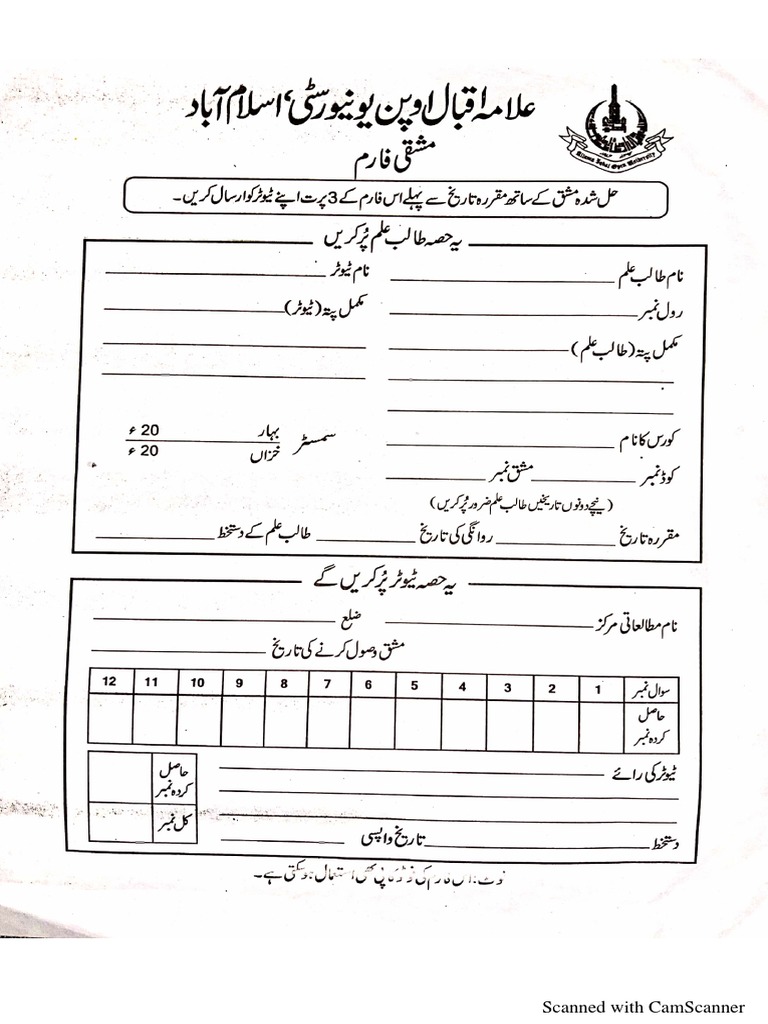 علامہ اقبال اوپن یونیورسٹی، اسلام آباد
Allama Iqbal Open University
مشقی فارم
حل شدہ مشق کے ساتھ مقررہ تاریخ سے پہلے اس فارم کے 3 پرت اپنے ٹیوٹر کو ارسال کریں۔
یہ حصہ طالب علم پُر کریں
نام طالب علم ____ نام ٹیوٹر ____
رول نمبر ____ مکمل پتہ (ٹیوٹر) ____
مکمل پتہ (طالب علم) ____
کورس کا نام ____ سمسٹر بہار 20ء
خزاں 20ء
کوڈ نمبر ____ مشق نمبر ____
(نیچے دونوں تاریخیں طالب علم ضرور پُر کریں)
مقررہ تاریخ ____ روانگی کی تاریخ ____ طالب علم کے دستخط ____
یہ حصہ ٹیوٹر پُر کریں گے
نام مطالعاتی مرکز ____ ضلع ____
مشق وصول کرنے کی تاریخ ____
سوال نمبر 1 2 3 4 5 6 7 8 9 10 11 12
حاصل کردہ نمبر
ٹیوٹر کی رائے ____
حاصل کردہ نمبر
کل نمبر
دستخط ____ تاریخ واپسی ____
نوٹ: اس فارم کی فوٹو کاپی بھی استعمال ہو سکتی ہے۔
Scanned with CamScanner